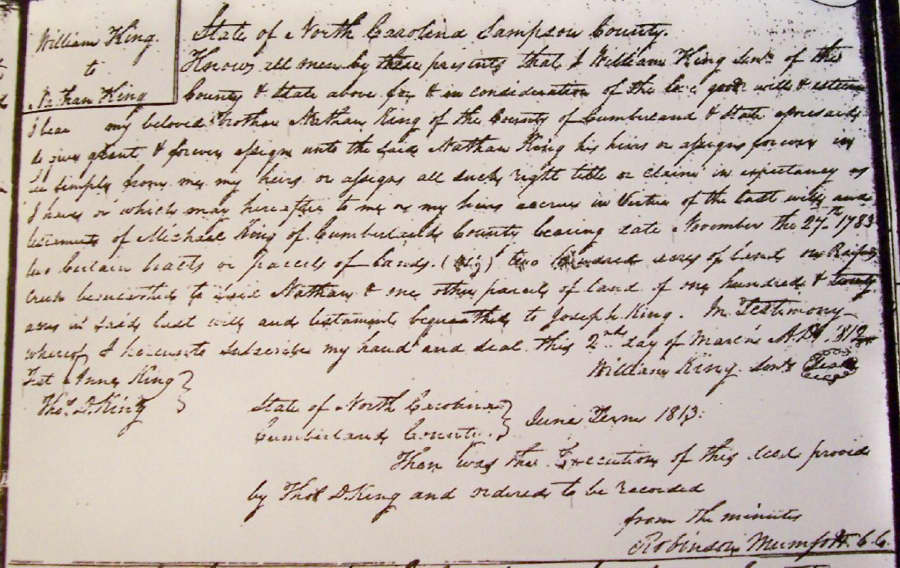 William King
to
Nathan King
State of North Carolina Sampson County.
Know all men by these presents that I William King Senr. of the
County & State above for & in consideration of the good will & esteem
I bear my beloved Brother Nathan King of the County of Cumberland & State aforesaid
do give grant & forever assign unto the said Nathan King his heirs or assigns forever in
fee simple from me my heirs or assigns all such right title or claim in expectancy as
I have or which may hereafter to me or my heirs accrue in Virtue of the last will and
testament of Michael King of Cumberland County bearing date November the 27th 1783
two Certain tracts or parcels of Lands. (viz) two hundred acres of Land on
Creek bequeathed to said Nathan & one other parcel of land of one hundred & twenty
acres in said last will and testament bequeathed to Joseph King. In Testimony
whereof I hereunto subscribe my hand and seal this 2nd day of March AD.
William King Senr. Seal
Test Anne King
Thos. D. King
State of North Carolina
Cumberland County } June Term 1813.
Then was the Execution of this deed proved
by Thos D. King and ordered to be recorded
from the minutes
Robinson Mumford C.C.